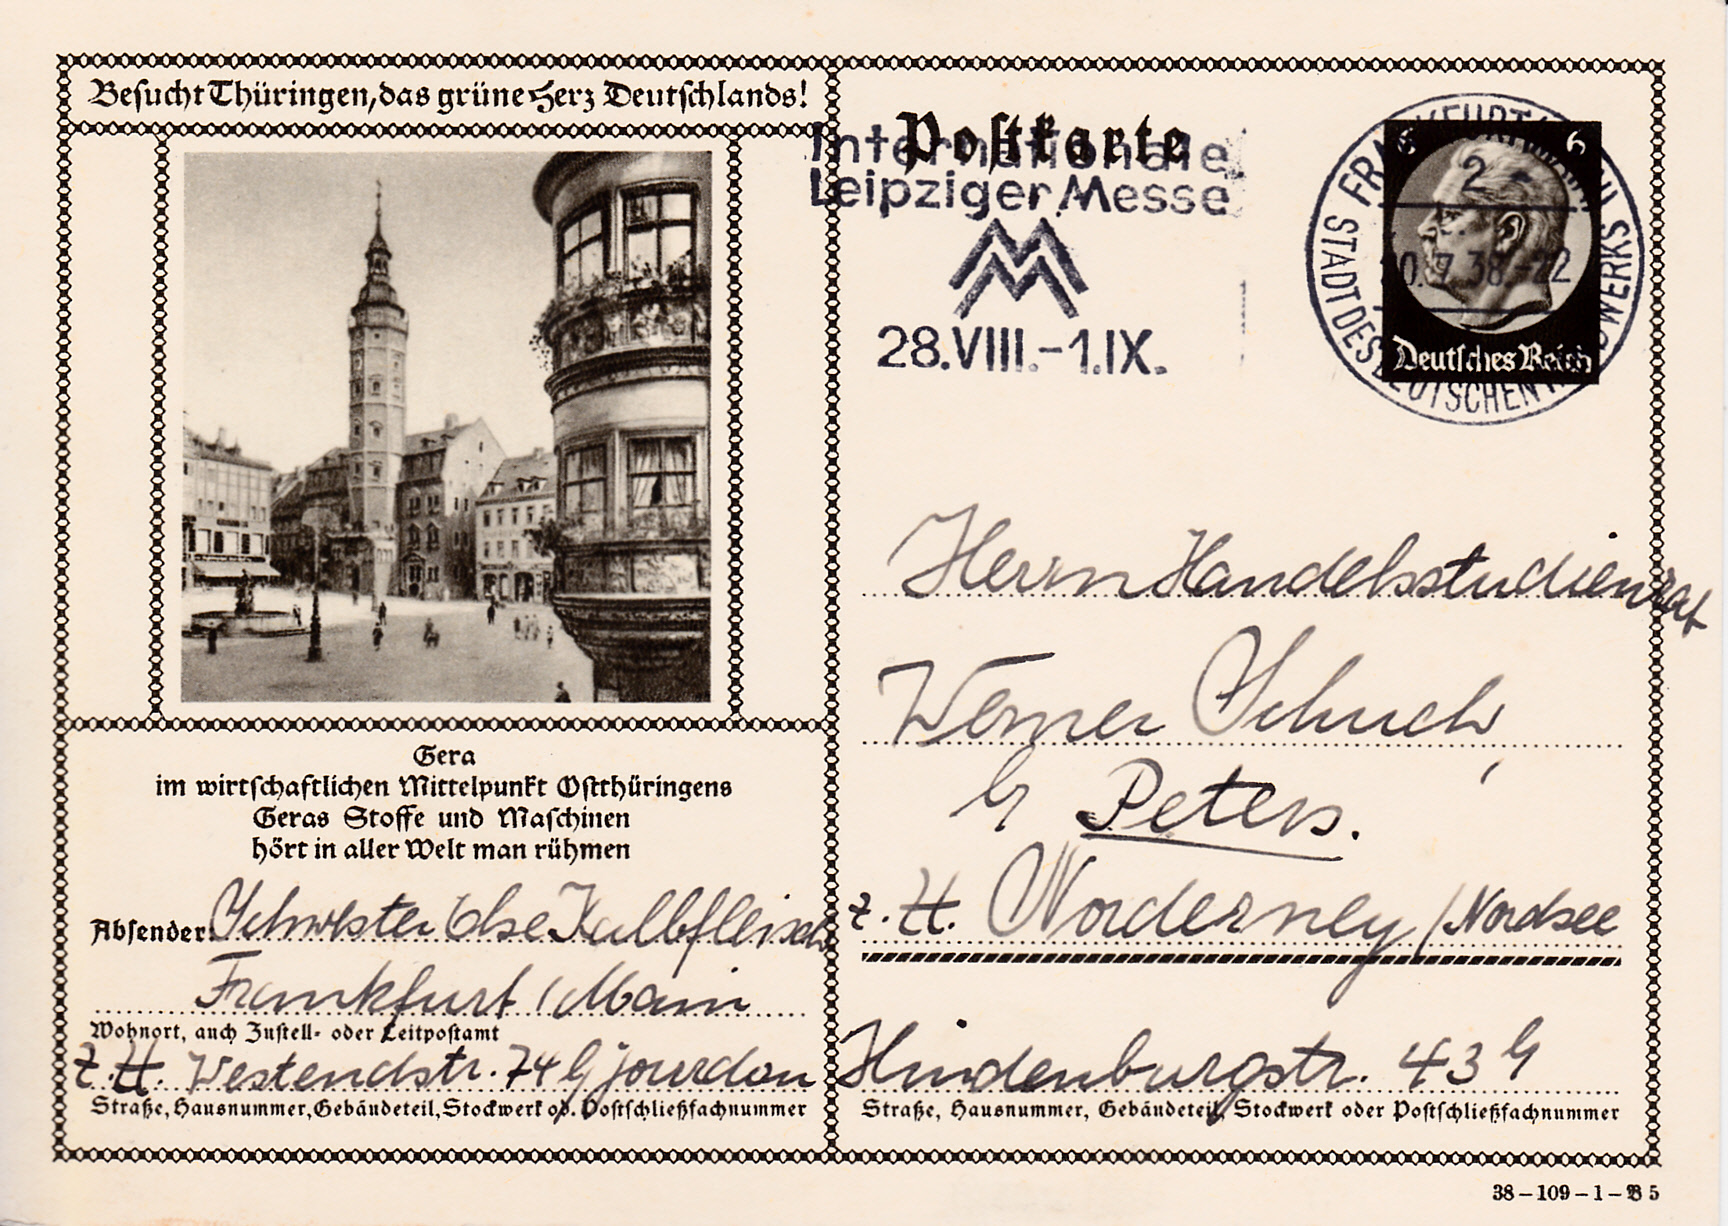 Besucht Thüringen, das grüne Herz Deutschlands!
Postkarte
Internationale
Leipziger Messe
28.VIII.-1.IX.
FRANKFURT
STADT DES DEUTSCHEN HANDWERKS
2
20.7.38.-22
6 6
Deutsches Reich
Gera
im wirtschaftlichen Mittelpunkt Ostthüringens
Geras Stoffe und Maschinen
hört in aller Welt man rühmen
Absender: Schwester Else Kalbfleisch
Frankfurt / Main
Wohnort, auch Zustell- oder Leitpostamt
z. Zt. Westendstr. 74 b/ Jourdan
Straße, Hausnummer, Gebäudeteil, Stockwerk od. Postschließfachnummer
Herrn Handelsstudienrat
Werner Schuch,
b/ Peters.
z. Zt. Norderney / Nordsee
Hindenburgstr. 43
Straße, Hausnummer, Gebäudeteil, Stockwerk oder Postschließfachnummer
38-109-1-B 5